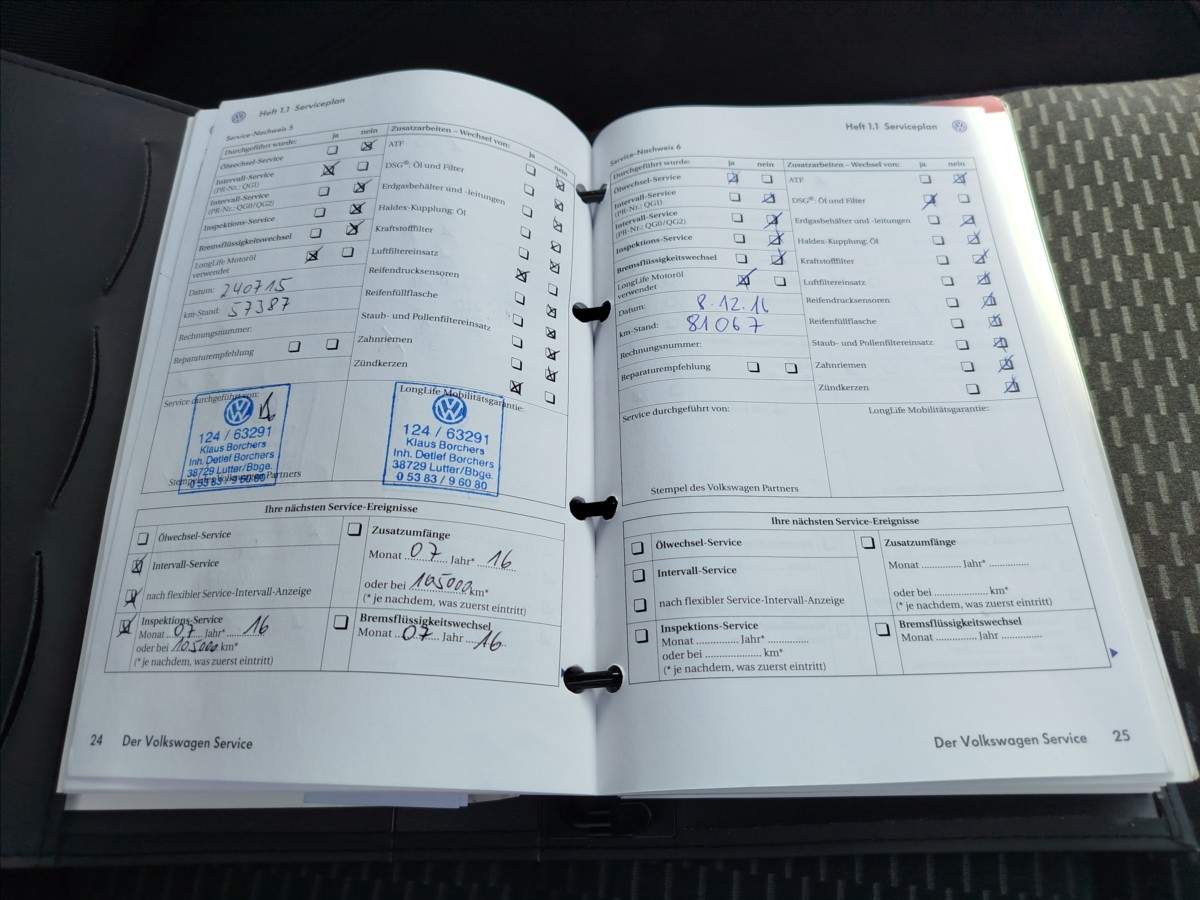 Heft 1.1 Serviceplan
Service-Nachweis 5
Durchgeführt wurde: ja nein
Ölwechsel-Service
Intervall-Service
(PR-Nr.: QG1)
Intervall-Service
(PR-Nr.: QG0/QG2)
Inspektions-Service
Bremsflüssigkeitswechsel
LongLife Motoröl
verwendet
Datum: 240715
km-Stand: 57387
Rechnungsnummer:
Reparaturempfehlung
Zusatzarbeiten – Wechsel von: ja nein
ATF
DSG®: Öl und Filter
Erdgasbehälter und -leitungen
Haldex-Kupplung: Öl
Kraftstofffilter
Luftfiltereinsatz
Reifendrucksensoren
Reifenfüllflasche
Staub- und Pollenfiltereinsatz
Zahnriemen
Zündkerzen
Service durchgeführt von:
124 / 63291
Klaus Borchers
Inh. Detlef Borchers
38729 Lutter/Bbge.
0 53 83 / 9 60 80
Stempel des Volkswagen Partners
LongLife Mobilitätsgarantie:
124 / 63291
Klaus Borchers
Inh. Detlef Borchers
38729 Lutter/Bbge.
0 53 83 / 9 60 80
Ihre nächsten Service-Ereignisse
Ölwechsel-Service
Intervall-Service
nach flexibler Service-Intervall-Anzeige
Inspektions-Service
Monat 07 Jahr* 16
oder bei 105000 km*
(* je nachdem, was zuerst eintritt)
Zusatzumfänge
Monat 07 Jahr* 16
oder bei 105000 km*
(* je nachdem, was zuerst eintritt)
Bremsflüssigkeitswechsel
Monat 07 Jahr 16
24 Der Volkswagen Service
Heft 1.1 Serviceplan
Service-Nachweis 6
Durchgeführt wurde: ja nein
Ölwechsel-Service
Intervall-Service
(PR-Nr.: QG1)
Intervall-Service
(PR-Nr.: QG0/QG2)
Inspektions-Service
Bremsflüssigkeitswechsel
LongLife Motoröl
verwendet
Datum: 8.12.16
km-Stand: 81067
Rechnungsnummer:
Reparaturempfehlung
Zusatzarbeiten – Wechsel von: ja nein
ATF
DSG®: Öl und Filter
Erdgasbehälter und -leitungen
Haldex-Kupplung: Öl
Kraftstofffilter
Luftfiltereinsatz
Reifendrucksensoren
Reifenfüllflasche
Staub- und Pollenfiltereinsatz
Zahnriemen
Zündkerzen
Service durchgeführt von:
Stempel des Volkswagen Partners
LongLife Mobilitätsgarantie:
Ihre nächsten Service-Ereignisse
Ölwechsel-Service
Intervall-Service
nach flexibler Service-Intervall-Anzeige
Inspektions-Service
Monat .............. Jahr* ..............
oder bei .................... km*
(* je nachdem, was zuerst eintritt)
Zusatzumfänge
Monat .............. Jahr* ..............
oder bei .................... km*
(* je nachdem, was zuerst eintritt)
Bremsflüssigkeitswechsel
Monat .............. Jahr ..............
Der Volkswagen Service 25